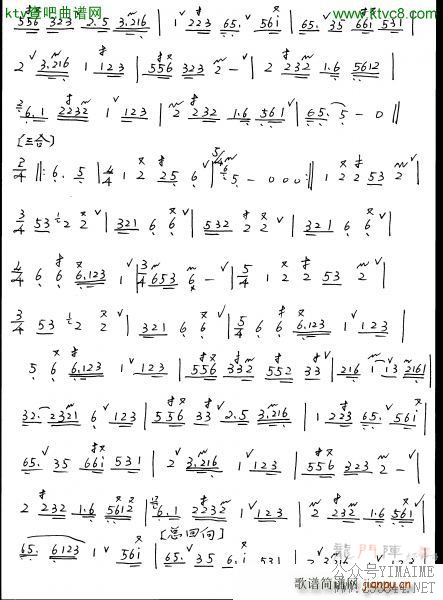 kty酷吧曲谱网 www.ktvc8.com
556 323 2.5 3.216 | 1 223 65. 56i | 65. 35 66i 531 |
2 3.216 1 123 | 556 323 2 - | 2 232 1.6 5612 |
6.1 2232 1 123 | 2 232 1.6 561 | 65. 5 - 0 ‖
[三合]
2/4 ‖: 6. 5 | 4/4 1 2 25 6 | 5/4 5 - 0 0 0 :‖ 1 2 2 53 2 |
3/4 53 2 2 | 321 6 6 | 532 2 2 | 321 6 6 |
4/4 6 6 6.123 1 | 3/4 653 6 - | 5/4 1 2 2 53 2 |
3/4 53 2 2 | 321 6 6 | 5/4 6 6 6.123 1 123 |
5 6 6.123 1 123 | 556 332 552 33 | 216 1 13 2161 |
32. 2321 6 123 | 556 33 2.5 3.216 | 1 223 65. 56i |
65. 35 66i 531 | 2 3.216 1 123 | 556 323 2 - |
2 232 1.6 5612 | 6.1 2232 1 123 | 2 232 1.6 561 |
[总回向]
65. 6123 1 56i | 65. 35 6.i 531 | 2 3216 1 123
公众号YIMAIME
歌谱简谱网 jianpu.cn